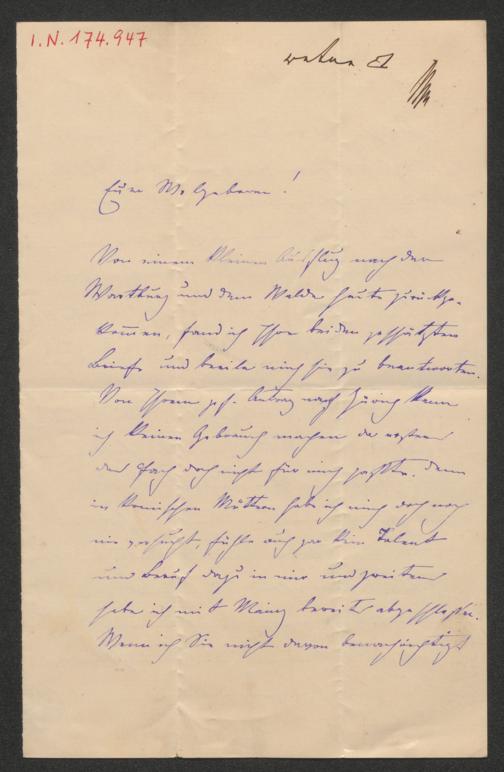 I.N. 174.947
Euer Wo Geboren!
Von einem kleinen Ausflug nach der
Wartburg und dem Walde heute zurückge-
kommen, fand ich Ihre beiden geschätzten
Briefe und beeile mich sie zu beantworten.
Von Ihrem gef. Antrag nach Zürich kann
ich keinen Gebrauch machen da erstens
das Fach doch nicht für mich paßte, denn
in komischen Müttern habe ich mich doch noch
nie versucht, fühle auch gar kein Talent
und Beruf dazu in mir und zweitens
habe ich mit Mainz bereits abgeschlossen.
Wenn ich Sie nicht davon benachrichtigt